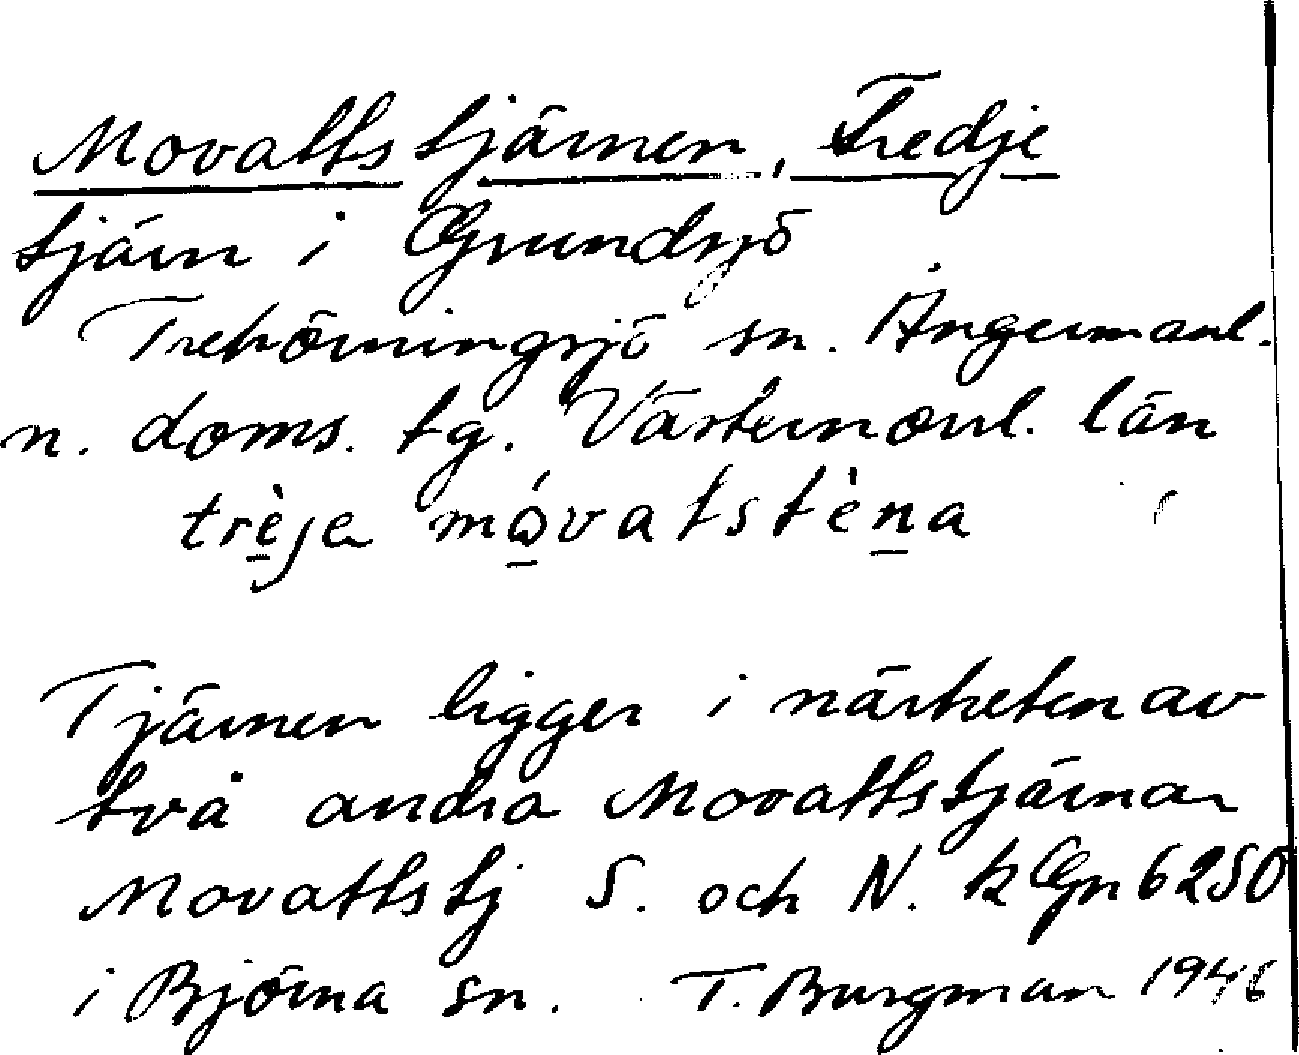 Movattstjärnen, Tredje
tjärn i Grundsjö
Trehörningsjö sn. Ångermanl.
n. doms. tg. Västernorrl. län
trèje mǫ́vatstèna
Tjärnen ligger i närheten av
två andra Movattstjärnar
Movattstj S. och N. k Gn 6250
i Björna sn. T. Burgman 1946